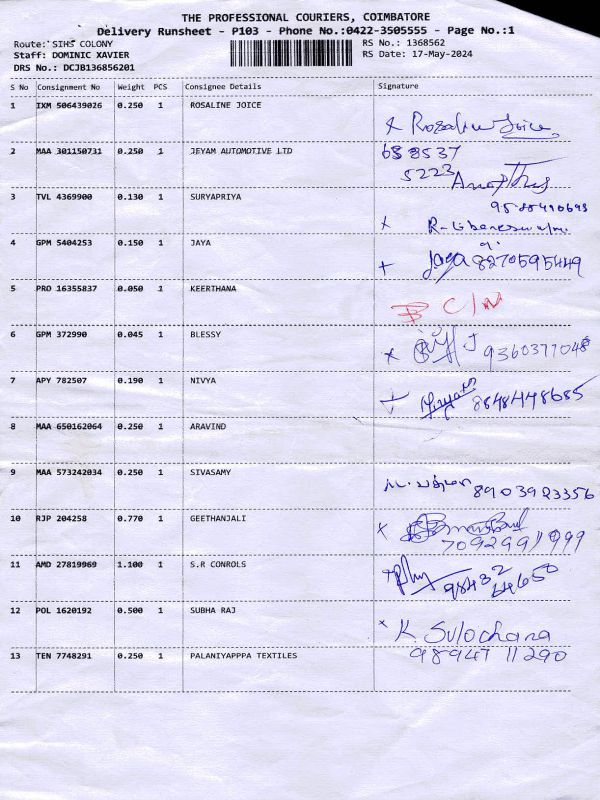 THE PROFESSIONAL COURIERS, COIMBATORE
Delivery Runsheet - P103 - Phone No.:0422-3505555 - Page No.:1
Route: SIHS COLONY RS No.: 1368562
Staff: DOMINIC XAVIER RS Date: 17-May-2024
DRS No.: DCJB136856201
S No Consignment No Weight PCS Consignee Details Signature
1 IXM 506439026 0.250 1 ROSALINE JOICE
x Rosaline Joice
2 MAA 301150731 0.250 1 JEYAM AUTOMOTIVE LTD
688537
5223
3 TVL 4369900 0.130 1 SURYAPRIYA
x
4 GPM 5404253 0.150 1 JAYA
+ Jaya 8270595449
5 PRO 16355837 0.050 1 KEERTHANA
C/N
6 GPM 372990 0.045 1 BLESSY
x 9360377048
7 APY 782507 0.190 1 NIVYA
8848448685
8 MAA 650162064 0.250 1 ARAVIND
9 MAA 573242034 0.250 1 SIVASAMY
8903923356
10 RJP 204258 0.770 1 GEETHANJALI
x
7092991999
11 AMD 27819969 1.100 1 S.R CONROLS
98432
44650
12 POL 1620192 0.500 1 SUBHA RAJ
x K. Sulochana
13 TEN 7748291 0.250 1 PALANIYAPPPA TEXTILES
98947 11290